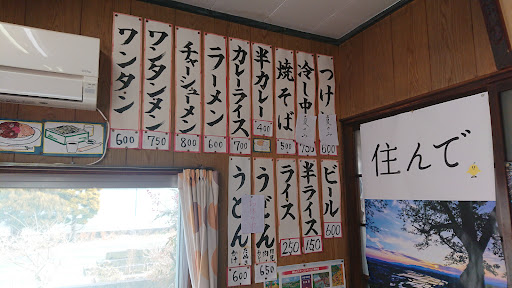 つけ
夏のみ
600
冷し中
夏のみ
700
焼そば
500
半カレー
400
カレーライス
700
ラーメン
600
チャーシューメン
800
ワンタンメン
750
ワンタン
600
ビール
600
半ライス
150
ライス
250
うどん
650
うどん
600
住んで